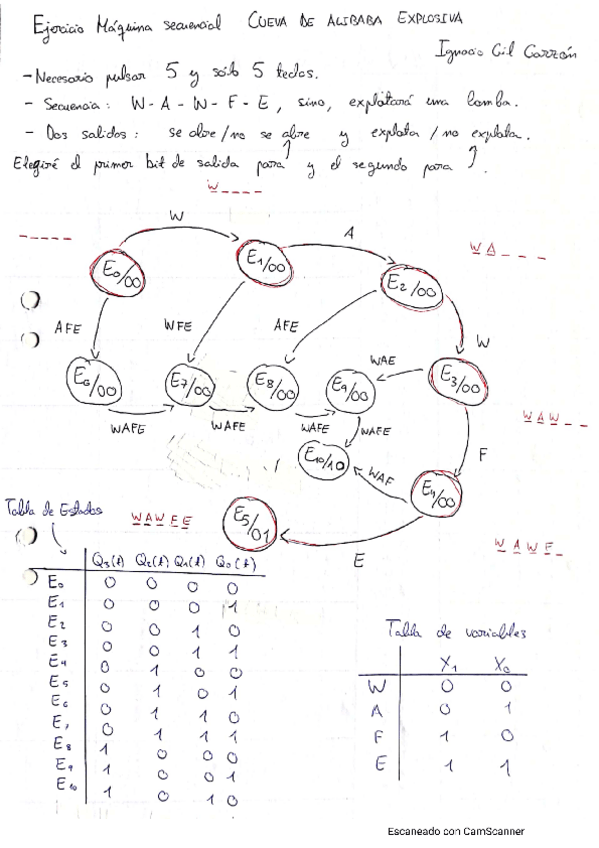 Ejercicio Máquina secuencial CUEVA DE ALIBABA EXPLOSIVA
Ignacio Gil Garzón
- Necesario pulsar 5 y sólo 5 teclas.
- Secuencia: W-A-W-F-E, sino, explotará una bomba.
- Dos salidas: se abre/no se abre y explota/no explota.
Elegiré el primer bit de salida para ↑ y el segundo para ↑.
W _ _ _ _
W
_ _ _ _ _
A
W A _ _ _
E0/00
E1/00
E2/00
AFE
WFE
AFE
W
WAE
E6/00
E7/00
E8/00
E9/00
E3/00
WAFE
WAFE
WAFE
WAFE
W A W _ _
E10/10
WAF
F
E4/00
Tabla de Estados
W A W F E
E5/01
E
W A W F _
Q3(t) Q2(t) Q1(t) Q0(t)
E0 0 0 0 0
E1 0 0 0 1
E2 0 0 1 0
E3 0 0 1 1
E4 0 1 0 0
E5 0 1 0 1
E6 0 1 1 0
E7 0 1 1 1
E8 1 0 0 0
E9 1 0 0 1
E10 1 0 1 0
Tabla de variables
X1 X0
W 0 0
A 0 1
F 1 0
E 1 1
Escaneado con CamScanner